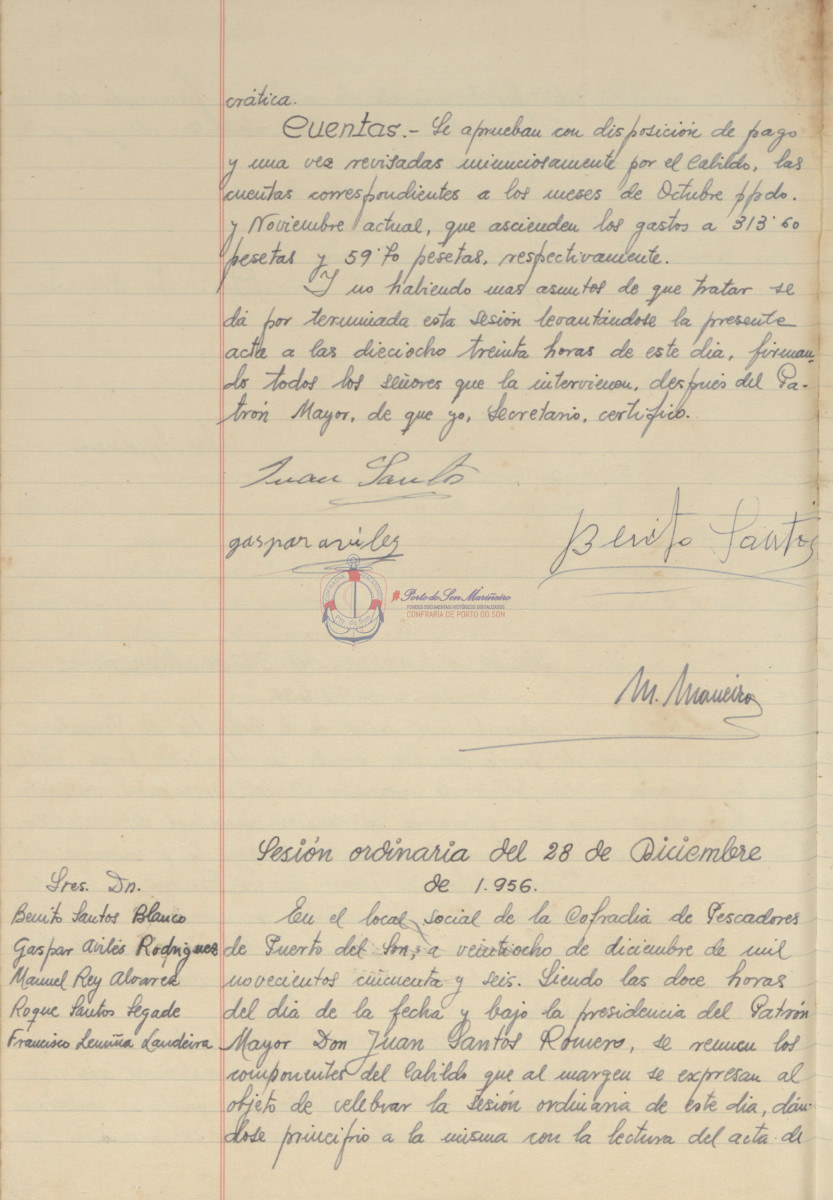 crática.
Cuentas.- Se aprueban con disposición de pago
y una vez revisadas minuciosamente por el Cabildo, las
cuentas correspondientes a los meses de Octubre ppdo.
y Noviembre actual, que ascienden los gastos a 313'60
pesetas y 59'70 pesetas, respectivamente.
Y no habiendo mas asuntos de que tratar se
dá por terminada esta sesión levantándose la presente
acta a las dieciocho treinta horas de este dia, firman-
do todos los señores que la intervienen, después del Pa-
trón Mayor, de que yo, Secretario, certifico.
Juan Santos
gaspar aviles
Benito Santos
Porto do Son Mariñeiro
FONDOS DOCUMENTAIS HISTÓRICOS DIXITALIZADOS
CONFRARÍA DE PORTO DO SON
M. Maneiro
Sesión ordinaria del 28 de Diciembre
de 1.956.
Sres. Dn.
Benito Santos Blanco
Gaspar Avilés Rodriguez
Manuel Rey Alvarez
Roque Santos Segade
Francisco Lemiña Landeira
En el local social de la Cofradia de Pescadores
de Puerto del Son, a veintiocho de diciembre de mil
novecientos cincuenta y seis. Siendo las doce horas
del dia de la fecha y bajo la presidencia del Patrón
Mayor Don Juan Santos Romero, se reunen los
componentes del Cabildo que al margen se expresan al
objeto de celebrar la sesión ordinaria de este dia, dán-
dose principio a la misma con la lectura del acta de